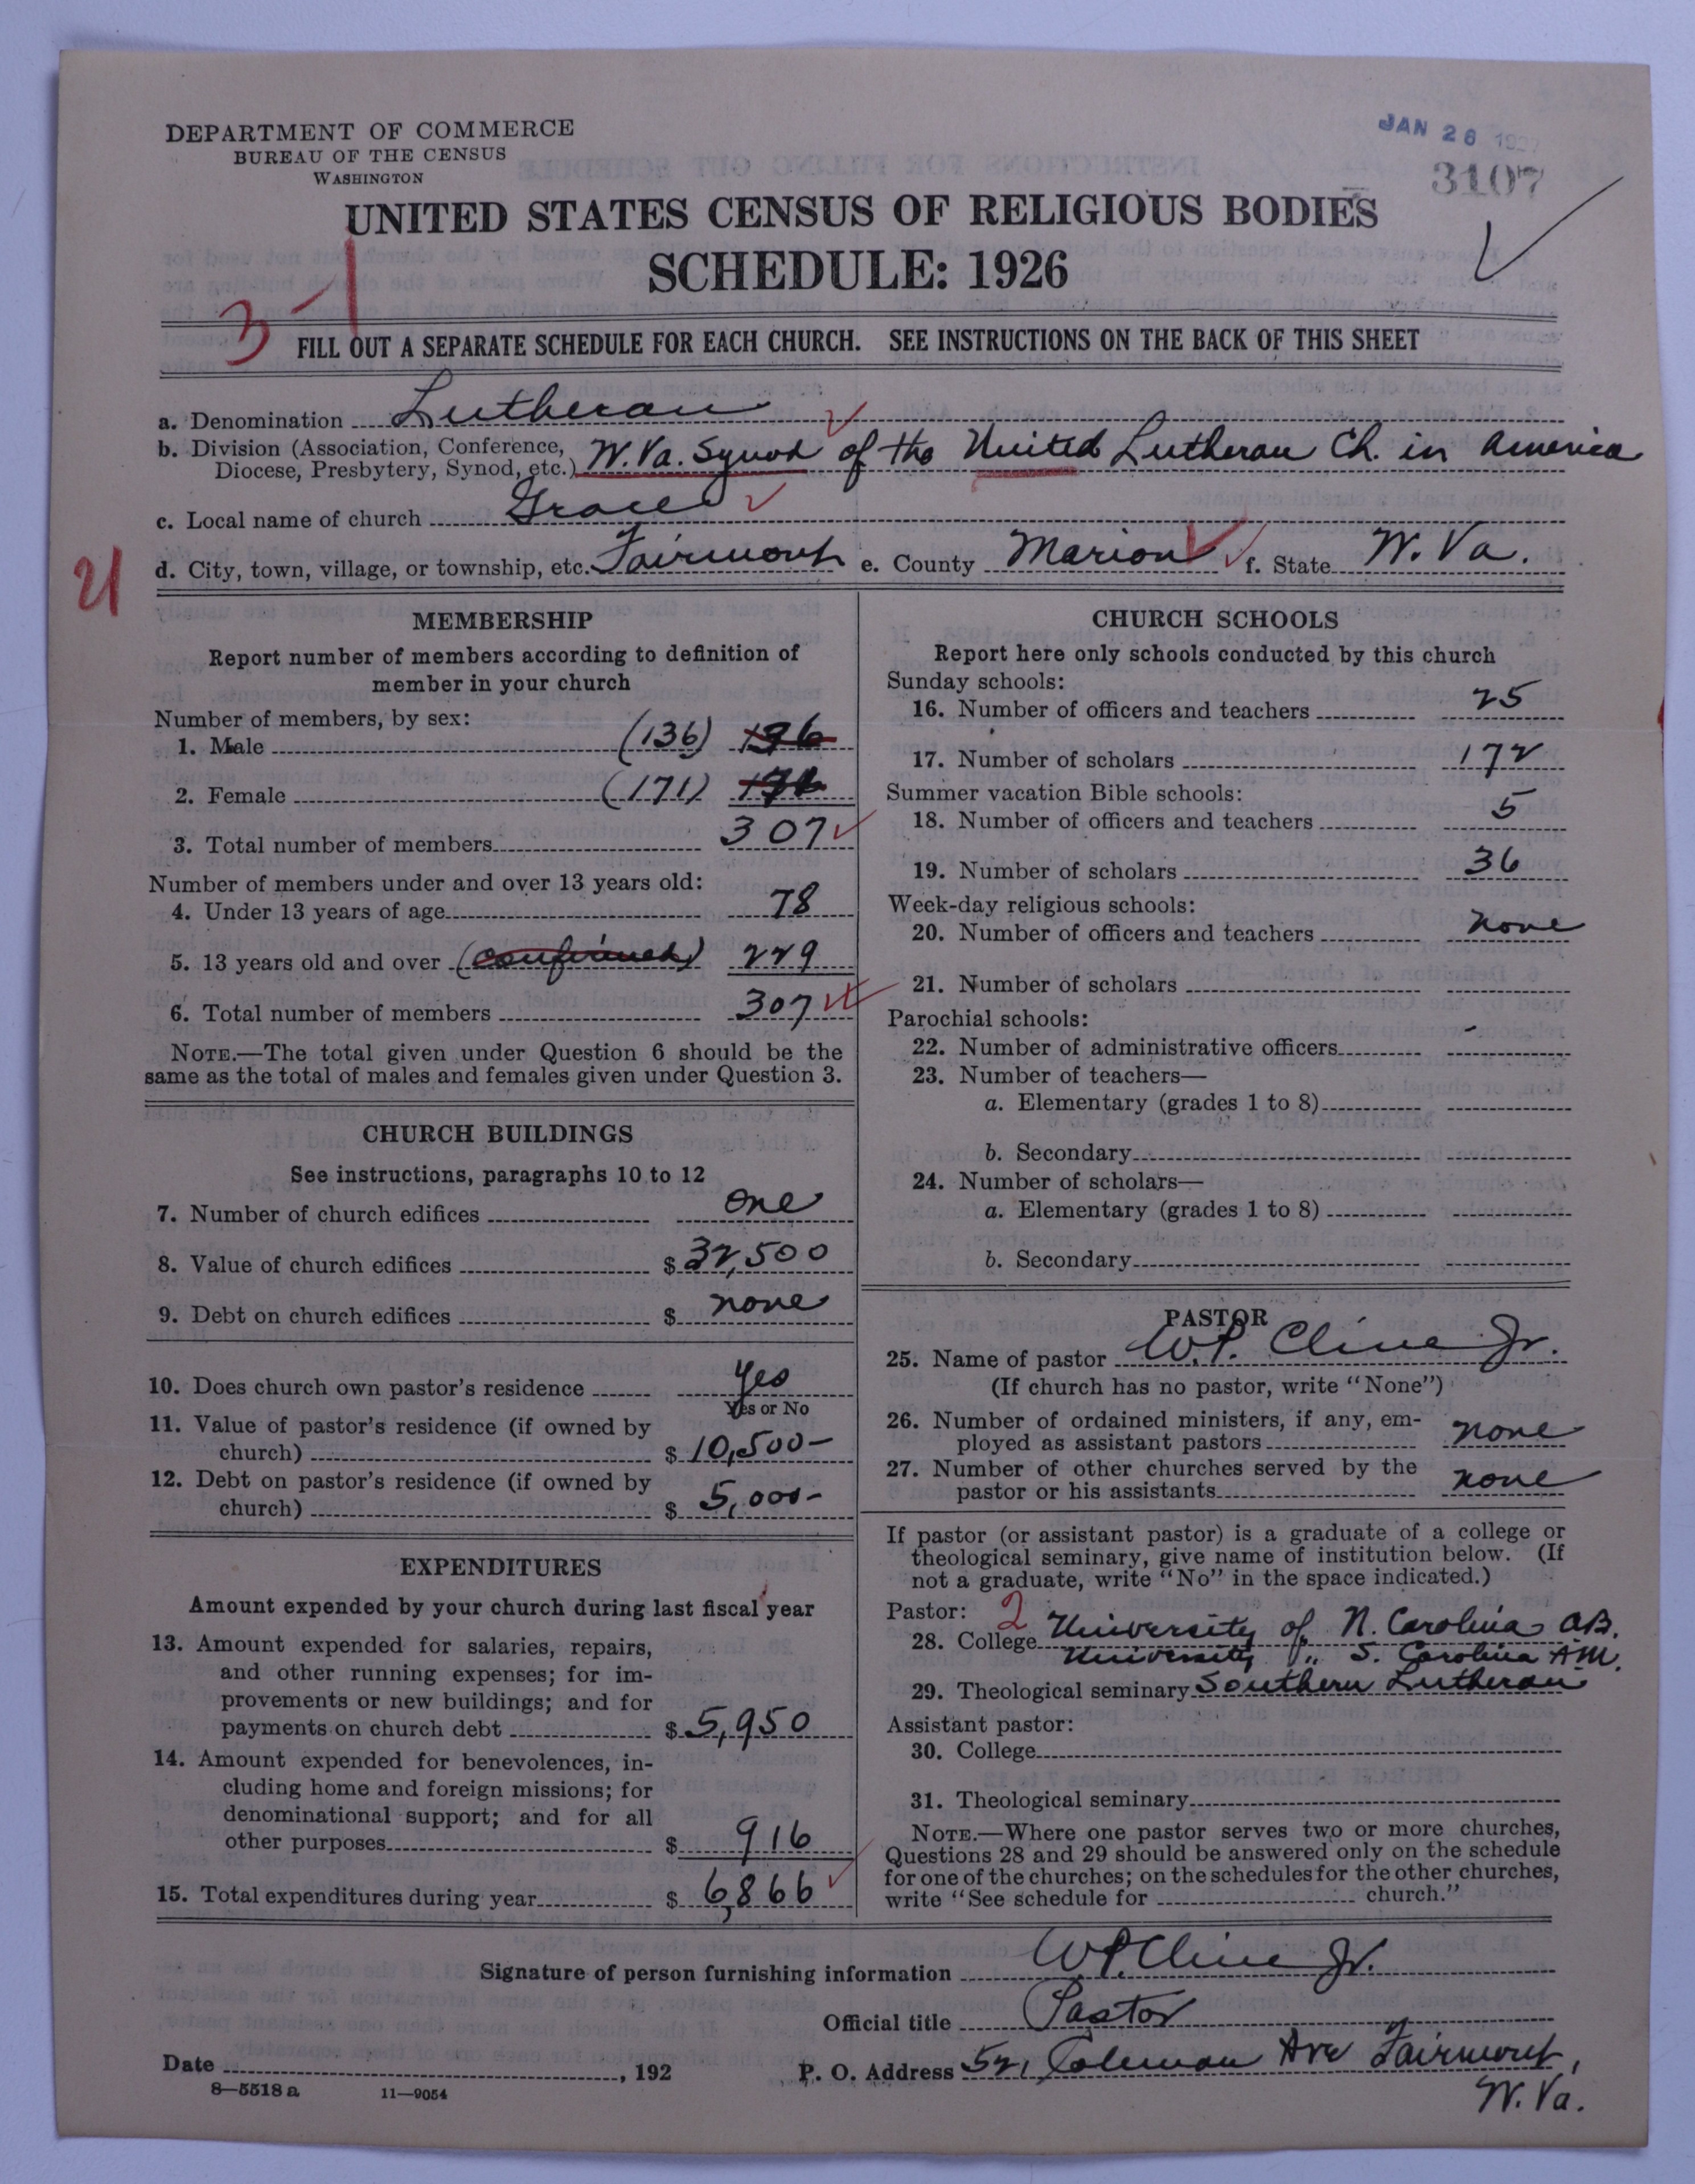 DEPARTMENT OF COMMERCE
BUREAU OF THE CENSUS
WASHINGTON
JAN 26 1927
3107
UNITED STATES CENSUS OF RELIGIOUS BODIES
SCHEDULE: 1926
3-1
FILL OUT A SEPARATE SCHEDULE FOR EACH CHURCH. SEE INSTRUCTIONS ON THE BACK OF THIS SHEET
a. Denomination Lutheran
b. Division (Association, Conference,
Diocese, Presbytery, Synod, etc.) W. Va. Synod of the United Lutheran Ch. in America
c. Local name of church Grace
21
d. City, town, village, or township, etc. Fairmont e. County Marion f. State W. Va.
MEMBERSHIP
Report number of members according to definition of
member in your church
Number of members, by sex:
1. Male (136)
2. Female (171)
3. Total number of members 307
Number of members under and over 13 years old:
4. Under 13 years of age 78
5. 13 years old and over (confirmed) 229
6. Total number of members 307
NOTE.—The total given under Question 6 should be the
same as the total of males and females given under Question 3.
CHURCH BUILDINGS
See instructions, paragraphs 10 to 12
7. Number of church edifices one
8. Value of church edifices $ 32,500
9. Debt on church edifices $ none
10. Does church own pastor's residence Yes
Yes or No
11. Value of pastor's residence (if owned by
church) $ 10,500-
12. Debt on pastor's residence (if owned by
church) $ 5,000-
EXPENDITURES
Amount expended by your church during last fiscal year
13. Amount expended for salaries, repairs,
and other running expenses; for im-
provements or new buildings; and for
payments on church debt $ 5,950
14. Amount expended for benevolences, in-
cluding home and foreign missions; for
denominational support; and for all
other purposes $ 916
15. Total expenditures during year $ 6,866
CHURCH SCHOOLS
Report here only schools conducted by this church
Sunday schools:
16. Number of officers and teachers 25
17. Number of scholars 172
Summer vacation Bible schools:
18. Number of officers and teachers 5
19. Number of scholars 36
Week-day religious schools:
20. Number of officers and teachers none
21. Number of scholars
Parochial schools:
22. Number of administrative officers -
23. Number of teachers—
a. Elementary (grades 1 to 8)
b. Secondary
24. Number of scholars—
a. Elementary (grades 1 to 8)
b. Secondary
PASTOR
25. Name of pastor W.P. Cline Jr.
(If church has no pastor, write "None")
26. Number of ordained ministers, if any, em-
ployed as assistant pastors none
27. Number of other churches served by the
pastor or his assistants none
If pastor (or assistant pastor) is a graduate of a college or
theological seminary, give name of institution below. (If
not a graduate, write "No" in the space indicated.)
Pastor: 2
28. College University of N. Carolina AB.
University " S. Carolina AM.
29. Theological seminary Southern Lutheran
Assistant pastor:
30. College
31. Theological seminary
NOTE.—Where one pastor serves two or more churches,
Questions 28 and 29 should be answered only on the schedule
for one of the churches; on the schedules for the other churches,
write "See schedule for church."
Signature of person furnishing information W.P. Cline Jr.
Official title Pastor
Date , 192 P. O. Address 521 Coleman Ave Fairmont,
W. Va.
8—5518 a 11—9054